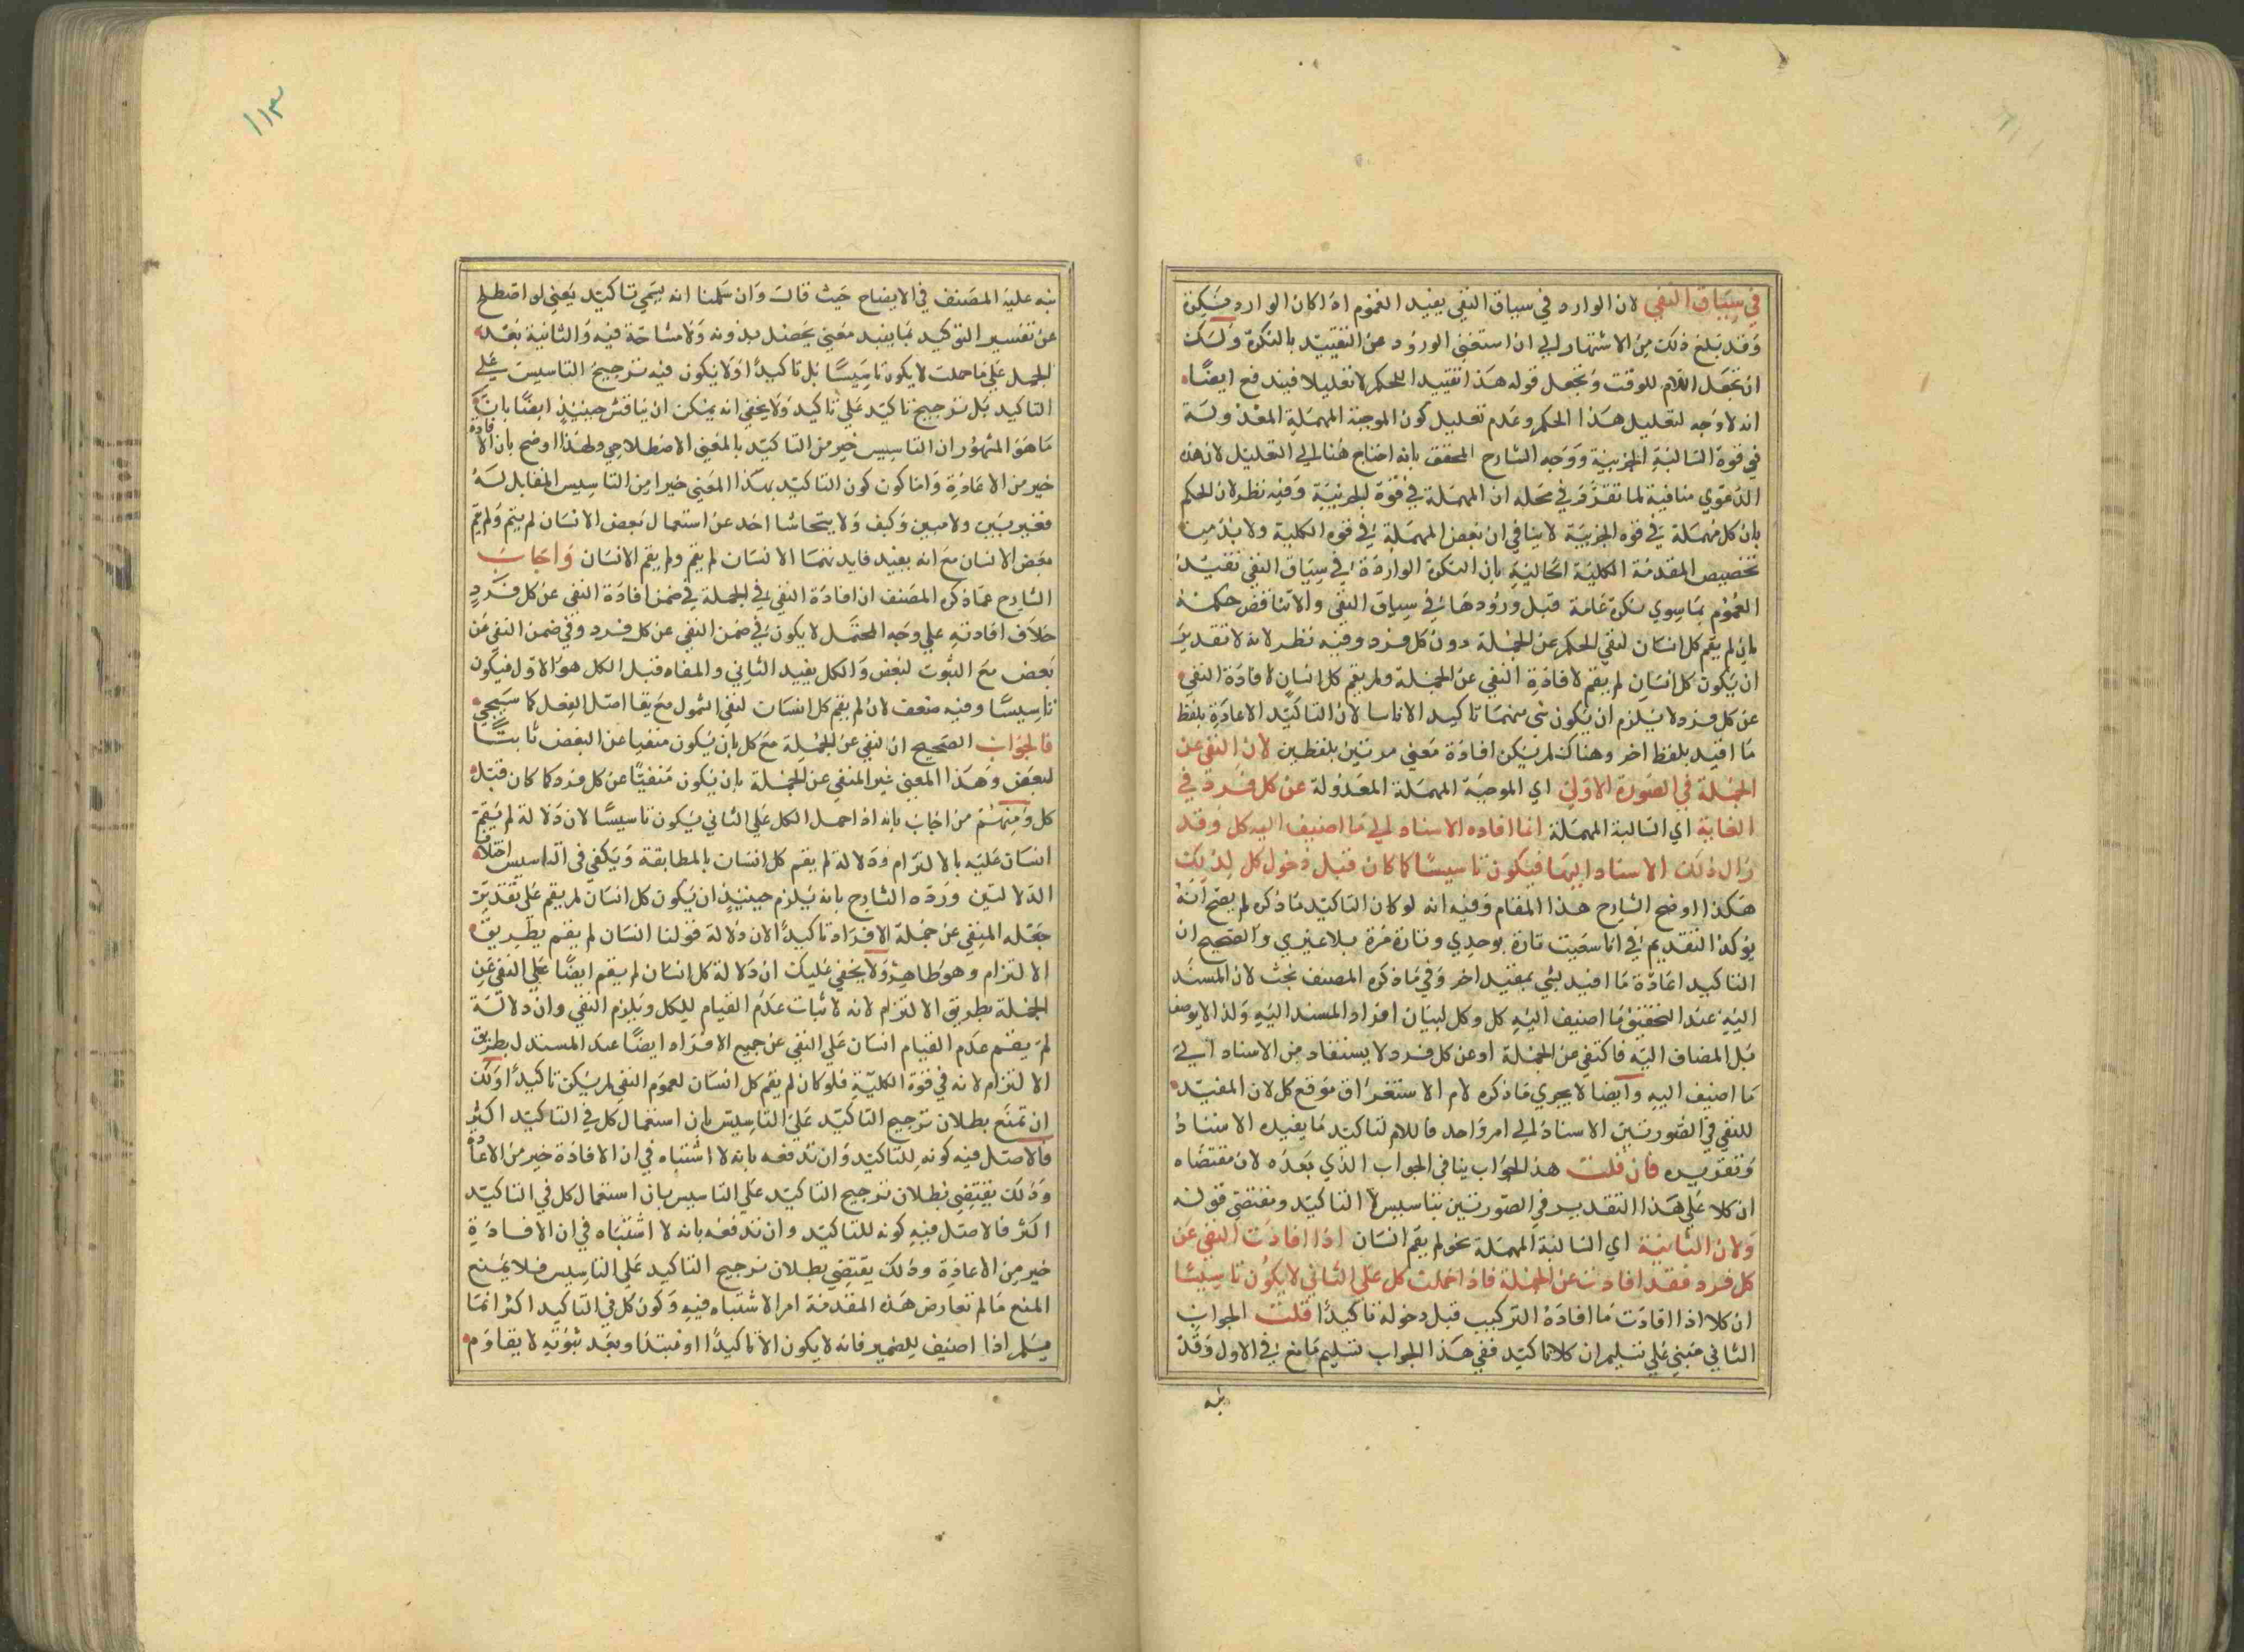 في سياق النفي لان الوارد في سياق النفي يفيد العموم اذا كان الوارد نكرة
وقد بلغ ذلك من الاشتهار الي ان استغني الورود عن التقييد بالنكرة ولك
ان تجعل اللام للوقت وتجعل قوله هذا تقييدا للحكم لا تعليلا فيندفع ايضا
انه لا وجه لتعليل هذا الحكم وعدم تعليل كون الموجبة المهملة المعدولة
في قوة السالبة الجزيية ووجه الشارح المحقق بانه احتاج هنا الي التعليل لان هذه
الدعوي منافية لما تقرر في محله ان المهملة في قوة الجزيية وفيه نظر لان الحكم
بان كل مهملة في قوة الجزيية لا ينافي ان بعض المهملة في قوة الكلية ولا بد من
تخصيص المقدمة الكلية الحالية بان النكرة الواردة في سياق النفي تفيد
العموم بما سوي نكرة عامة قبل ورودها في سياق النفي والا تناقض حكمه
بان لم يقم كل انسان لنفي الحكم عن الجملة دون كل فرد وفيه نظر لانه لا تقدير
ان يكون كل انسان لم يقم لافادة النفي عن الجملة ولم يقم كل انسان لافادة النفي
عن كل فرد لا يلزم ان يكون شي منهما تاكيد الا تاسا لان التاكيد الاعادة بلفظ
ما افيد بلفظ اخر وهناك لم يكن افادة معني مرتين بلفظين لان النفي عن
الجملة في الصورة الاولي اي الموجبة المهملة المعدولة عن كل فرد في
الثانية اي السالبة المهملة انما افاده الاسناد الي ما اضيف اليه كل وقد
زال ذلك الاسناد اليها فيكون تاسيسا كما كان قبل دخول كل لذلك
هكذا اوضح الشارح هذا المقام وفيه انه لو كان التاكيد ما ذكره لم يصح انه
يوكد التقديم في انا سعيت تارة بوحدي وتارة مرة بلا غيري والصحيح ان
التاكيد اعادة ما افيد بشي بمفيد اخر وفي ما ذكره المصنف بحث لان المسند
اليه عند التحقيق ما اضيف اليه كل وكل لبيان افراد المسند اليه ولذا لا يوصف
بل المضاف اليه فاكتفي عن الجملة او عن كل فرد لا يستفاد من الاسناد الي
ما اضيف اليه وايضا لا يجري ما ذكره لام الاستغراق موقع كل لان المفيد
للنفي في الصورتين الاسناد الي امر واحد فاللام لتاكيد ما يفيده الاسناد
وتقريره فان قلت هذا الجواب ينافي الجواب الذي بعده لان مقتضاه
ان كلا علي هذا التقدير في الصورتين تاسيس لا التاكيد ومقتضي قوله
ولان الثانية اي السالبة المهملة نحو لم يقم انسان اذا افادت النفي عن
كل فرد فقد افادت عن الجملة فاذا حملت كل علي الثاني لا يكون تاسيسا
ان كلا اذا افادت ما افادة التركيب قبل دخوله تاكيدا قلت الجواب
الثاني مبني علي تسليم ان كلا تاكيد ففي هذا الجواب تسليم ما منع في الاول وقد
نبه
١١٣
نبه عليه المصنف في الايضاح حيث قال وان سلمنا انه يسمي تاكيد يعني لو اصطلح
عن تفسير التوكيد بما يفيد معني يحصل بدونه ولا مشاحة فيه والثانية بعد
الجمل علي ما حملت لا يكون تاسيسا بل تاكيدا اولا يكون فيه ترجيح التاسيس علي
التاكيد بل ترجيح تاكيد علي تاكيد ولا يخفي انه يمكن ان يناقش حينيذ ايضا بان
ما هو المشهور ان التاسيس خير من التاكيد بالمعني الاصطلاحي ولهذا اوضح بان الافادة
خير من الاعادة واما كون كون التاكيد بهذا المعني خيرا من التاسيس المقابل له
فغير بين ولا مبين وكيف ولا يتحاشا احد عن استعمال بعض الانسان لم يقم ولم يقم
بعض الانسان مع انه يفيد فايدتهما الانسان لم يقم ولم يقم الانسان واجاب
الشارح عما ذكره المصنف ان افادة النفي في الجملة في ضمن افادة النفي عن كل فرد
خلاف افادته علي وجه المحتمل لا يكون في ضمن النفي عن كل فرد وفي ضمن النفي عن
بعض مع الثبوت لبعض والكل يفيد الثاني والمفاه قبل الكل هو الاول فيكون
تاسيسا وفيه ضعف لان لم يقم كل انسان لنفي الشمول مع بقا اصل الفعل كما سيجي
فالجواب الصحيح ان النفي عن الجملة مع كل بان يكون منفيا عن البعض ثابتا
لبعض وهذا المعني غير المنفي عن الجملة بان يكون منفيا عن كل فرد كما كان قبل
كل ومنهم من اجاب بانه اذا حمل الكل علي الثاني يكون تاسيسا لان دلالة لم يقم
انسان عليه بالالتزام ودلالة لم يقم كل انسان بالمطابقة ويكفي في التاسيس اختلاف
الدلالتين ورده الشارح بانه يلزم حينيذ ان يكون كل انسان لم يقم علي تقدير
جعله المنفي عن جملة الافراد تاكيدا لان دلالة قولنا انسان لم يقم بطريق
الالتزام وهو ظاهر ولا يخفي عليك ان دلالة كل انسان لم يقم ايضا علي النفي عن
الجملة بطريق الالتزام لانه لاثبات عدم القيام للكل ويلزم النفي وان دلالة
لم يقم عدم القيام انسان علي النفي عن جميع الافراد ايضا عند المستدل بطريق
الالتزام لانه في قوة الكلية فلو كان لم يقم كل انسان لعموم النفي لم يكن تاكيدا ولك
ان تمنع بطلان ترجيح التاكيد علي التاسيس بان استعمال كل في التاكيد اكثر
فالاصل فيه كونه للتاكيد وان تدفعه بانه لا اشتباه في ان الافادة خير من الاعادة
وذلك يقتضي بطلان ترجيح التاكيد علي التاسيس بان استعمال كل في التاكيد
اكثر فالاصل فيه كونه للتاكيد وان تدفعه بانه لا اشتباه في ان الافادة
خير من الاعادة وذلك يقتضي بطلان ترجيح التاكيد علي التاسيس فلا يمنع
المنع ما لم تعارض هذه المقدمة امر الاشتباه فيه وكون كل في التاكيد اكثر انما
يسلم اذا اضيف للضمير فانه لا يكون الا تاكيدا او مبتدا وبعد ثبوته لا يقاوم